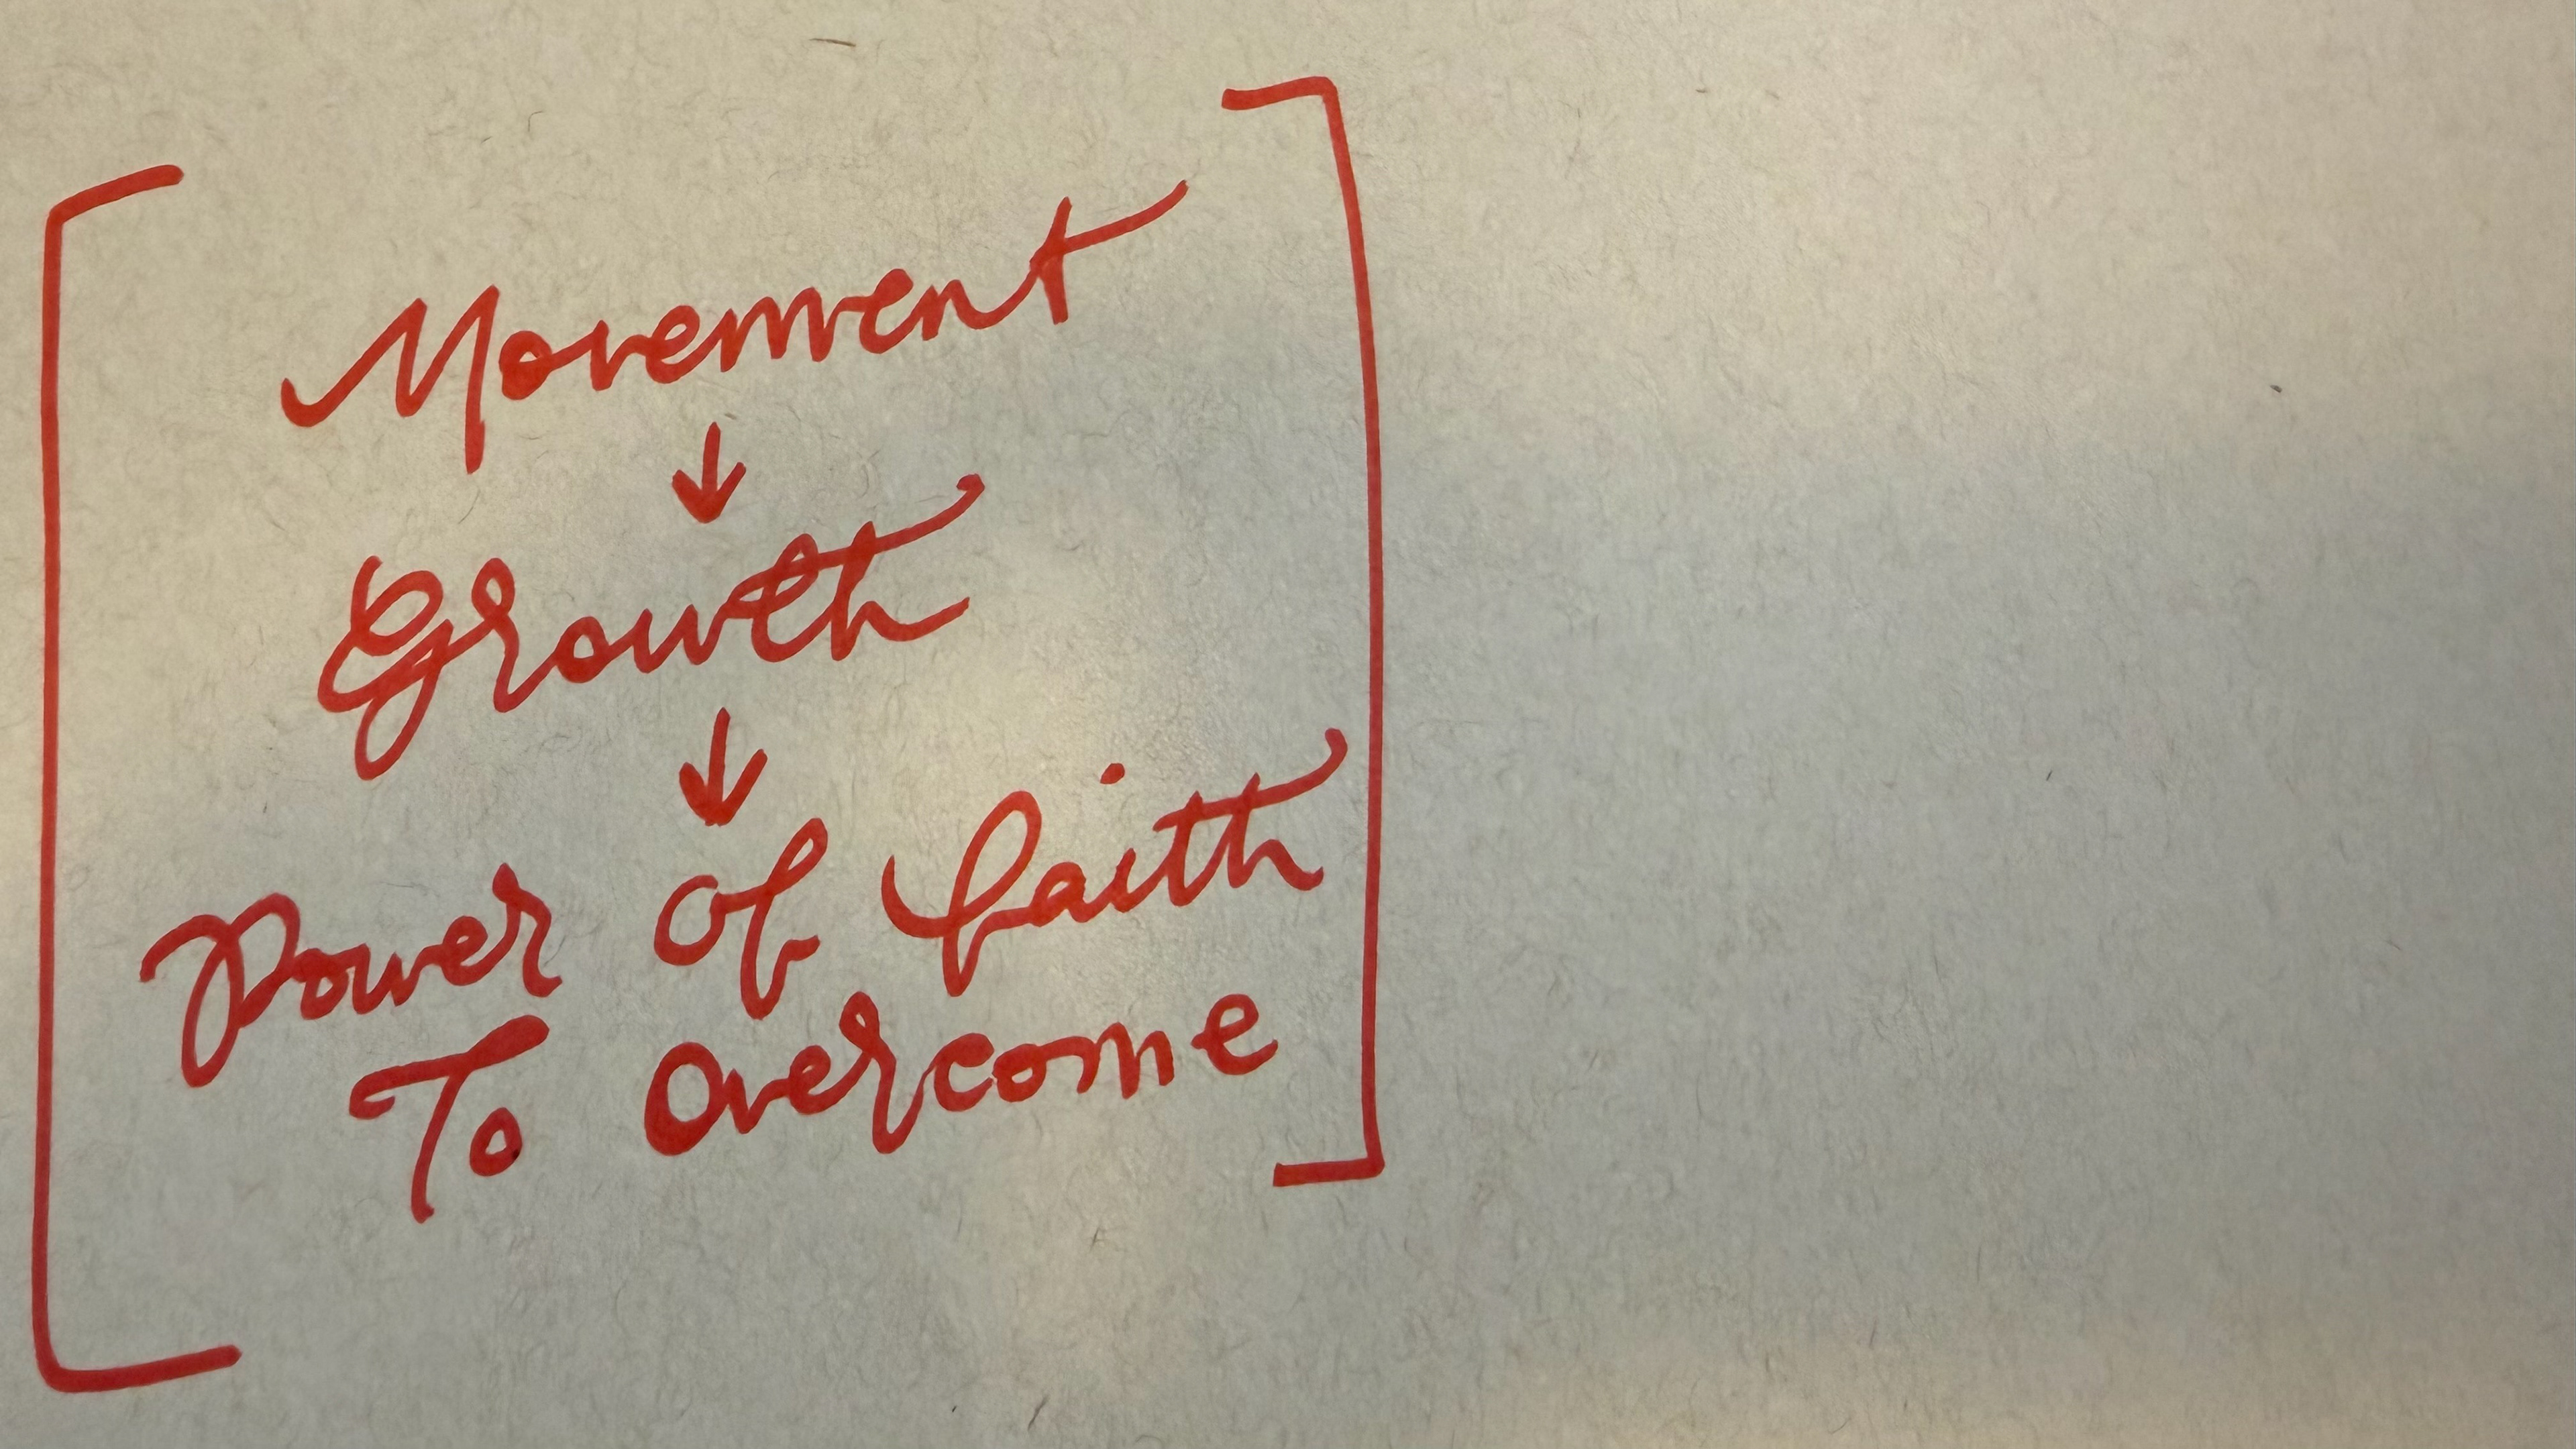 Movement
↓
Growth
↓
Power of faith
To overcome